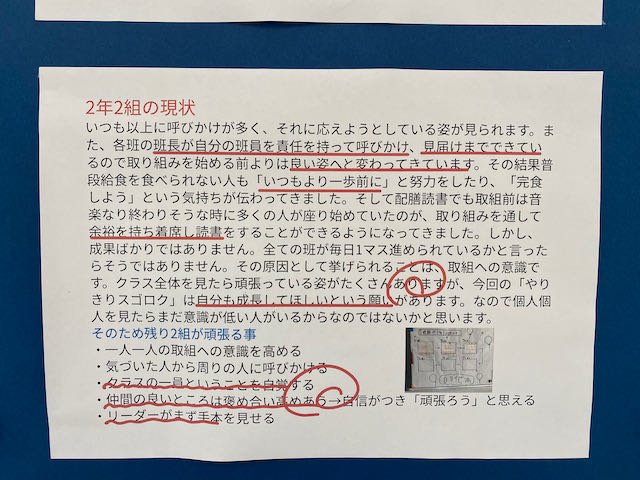 2年2組の現状
いつも以上に呼びかけが多く、それに応えようとしている姿が見られます。ま
た、各班の班長が自分の班員を責任を持って呼びかけ、見届けまでできてい
るので取り組みを始める前よりは良い姿へと変わってきています。その結果普
段給食を食べられない人も「いつもより一歩前に」と努力をしたり、「完食
しよう」という気持ちが伝わってきました。そして配膳読書でも取組前は音
楽なり終わりそうな時に多くの人が座り始めていたのが、取り組みを通して
余裕を持ち着席し読書をすることができるようになってきました。しかし、
成果ばかりではありません。全ての班が毎日1マス進められているかと言った
らそうではありません。その原因として挙げられることは、取組への意識で
す。クラス全体を見たら頑張っている姿がたくさんありますが、今回の「やり
きりスゴロク」は自分も成長してほしいという願いがあります。なので個人個
人を見たらまだ意識が低い人がいるからなのではないかと思います。
そのため残り2組が頑張る事
・一人一人の取組への意識を高める
・気づいた人から周りの人に呼びかける
・クラスの一員ということを自覚する
・仲間の良いところは褒め合い高めあう→自信がつき「頑張ろう」と思える
・リーダーがまず手本を見せる